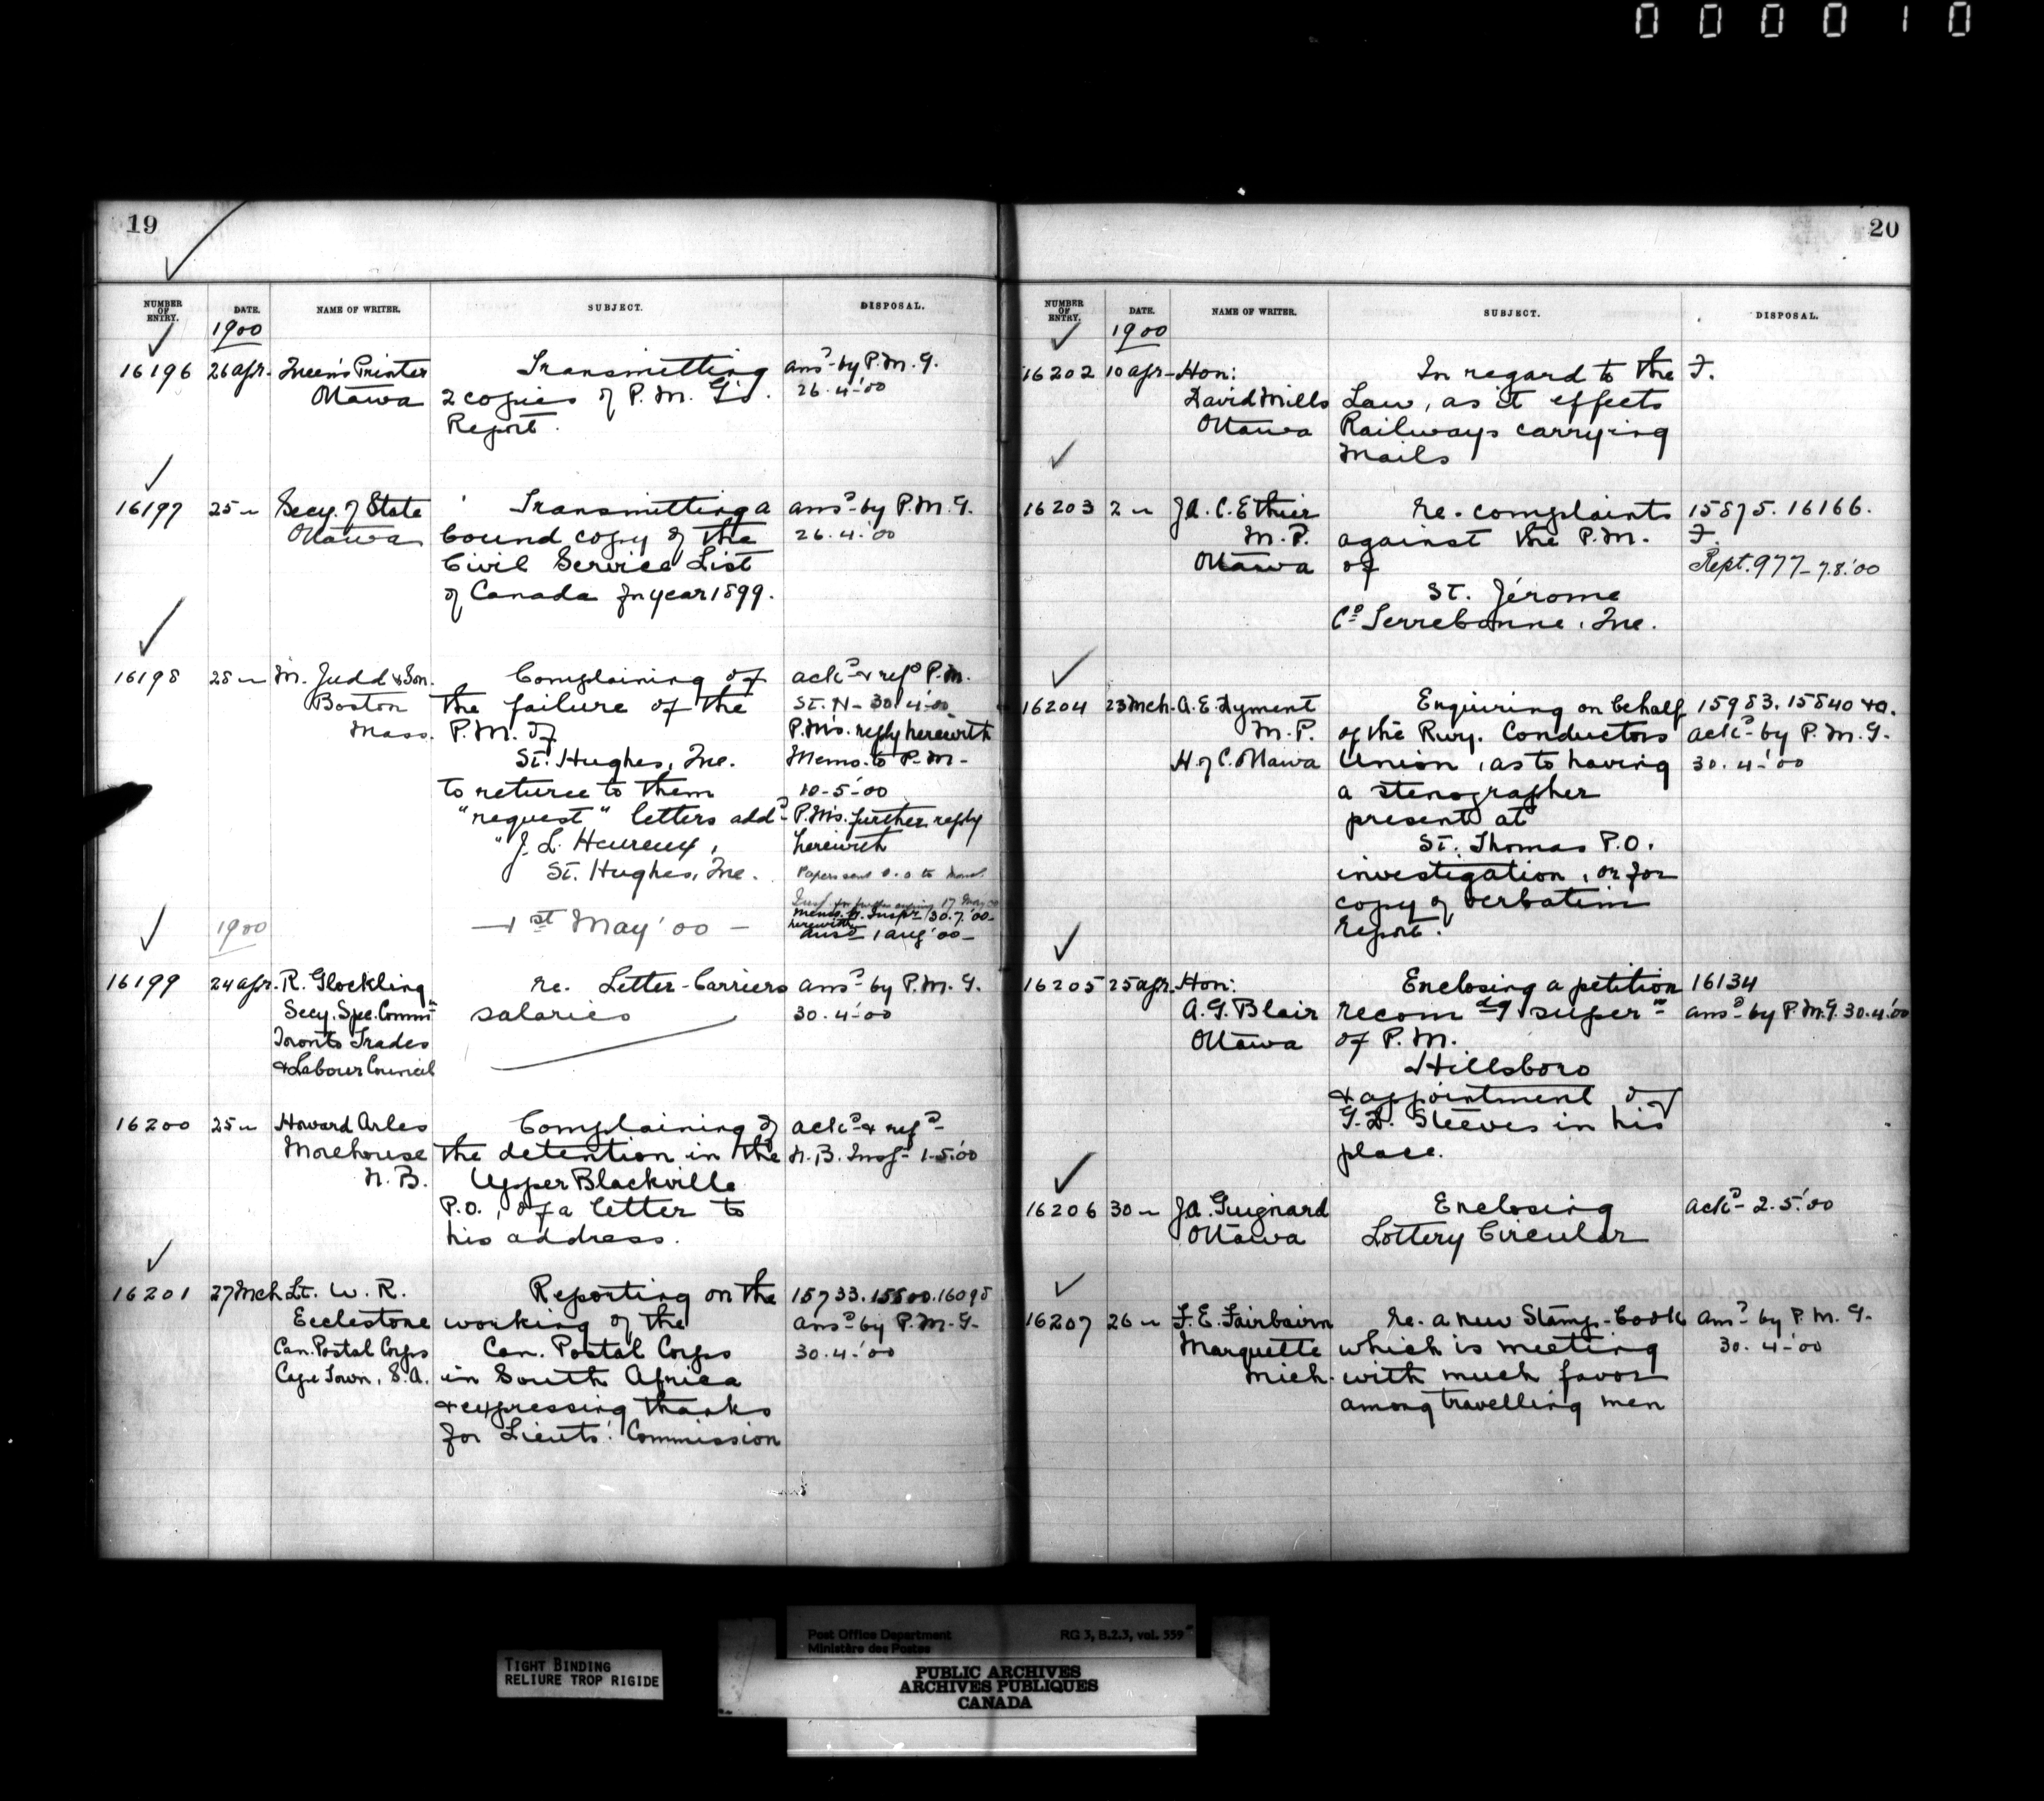 000010
19
NUMBER OF ENTRY. DATE. NAME OF WRITER. SUBJECT. DISPOSAL.
1900
16196 26 Apr. Queen's Printer Transmitting ansd by P.M.G.
Ottawa 2 copies of P.M.G's. 26.4.'00
Report.
16197 25 " Secy. of State Transmitting a ansd by P.M.G.
Ottawa bound copy of the 26.4.'00
Civil Service List
of Canada for year 1899.
16198 28 " M. Judd & Son. Complaining of ackd & refd P.M.
Boston the failure of the St. H- 30.4.00
Mass. P.M. of P.M's. reply herewith
St. Hughes, Que. Memo. to P.M-
to return to them 10-5-00
"request" letters addd P.M's. further reply
"J. L. Heureux, herewith
St. Hughes, Que. Papers sent to
Memo. fr. Inspr 30.7.'00-
herewith
1900 -1st May '00- ansd 1 Aug '00-
16199 24 Apr. R. Glockling re. Letter-Carriers ansd by P.M.G.
Secy. Spe. Commt salaries 30.4.'00
Toronto Trades
& Labour Council
16200 25 " Howard Arles Complaining of ackd & refd
Morehouse the detention in the N.B. Insp- 1.5.'00
N.B. Upper Blackville
P.O., of a letter to
his address.
16201 27 Mch Lt. W. R. Reporting on the 15733.15500.16098
Ecclestone working of the ansd by P.M.G-
Can. Postal Corps Can. Postal Corps 30.4.'00
Cape Town, S.A. in South Africa
& expressing thanks
for Lieuts'. Commission
20
NUMBER OF ENTRY. DATE. NAME OF WRITER. SUBJECT. DISPOSAL.
1900
16202 10 Apr- Hon: In regard to the F.
David Mills Law, as it effects
Ottawa Railways carrying
Mails
16203 2 " J.A.C. Ethier re. complaints 15875. 16166.
M.P. against the P.M. F.
Ottawa of Rept. 977- 7.8.'00
St. Jérome
Co Terrebonne, Que.
16204 23 Mch. A.E. Dyment Enquiring on behalf 15983. 15840 &a.
M.P. of the Rwy. Conductors ackd by P.M.G.
H. of C. Ottawa Union, as to having 30.4.'00
a stenographer
present at
St. Thomas P.O.
investigation, or for
copy of verbatim
report.
16205 25 Apr. Hon: Enclosing a petition 16134
A.G. Blair recomdg supern ansd by P.M.G. 30.4.'00
Ottawa of P.M.
Hillsboro
& appointment of
G.D. Steeves in his
place.
16206 30 " J.A. Guignard Enclosing ackd 2.5.'00
Ottawa Lottery Circular
16207 26 " F.E. Fairbairn re. a new Stamp-book ansd by P.M.G.
Marquette which is meeting 30.4.'00
Mich. with much favor
among travelling men
TIGHT BINDING
RELIURE TROP RIGIDE
Post Office Department RG 3, B.2.3, vol. 559
Ministère des Postes
PUBLIC ARCHIVES
ARCHIVES PUBLIQUES
CANADA